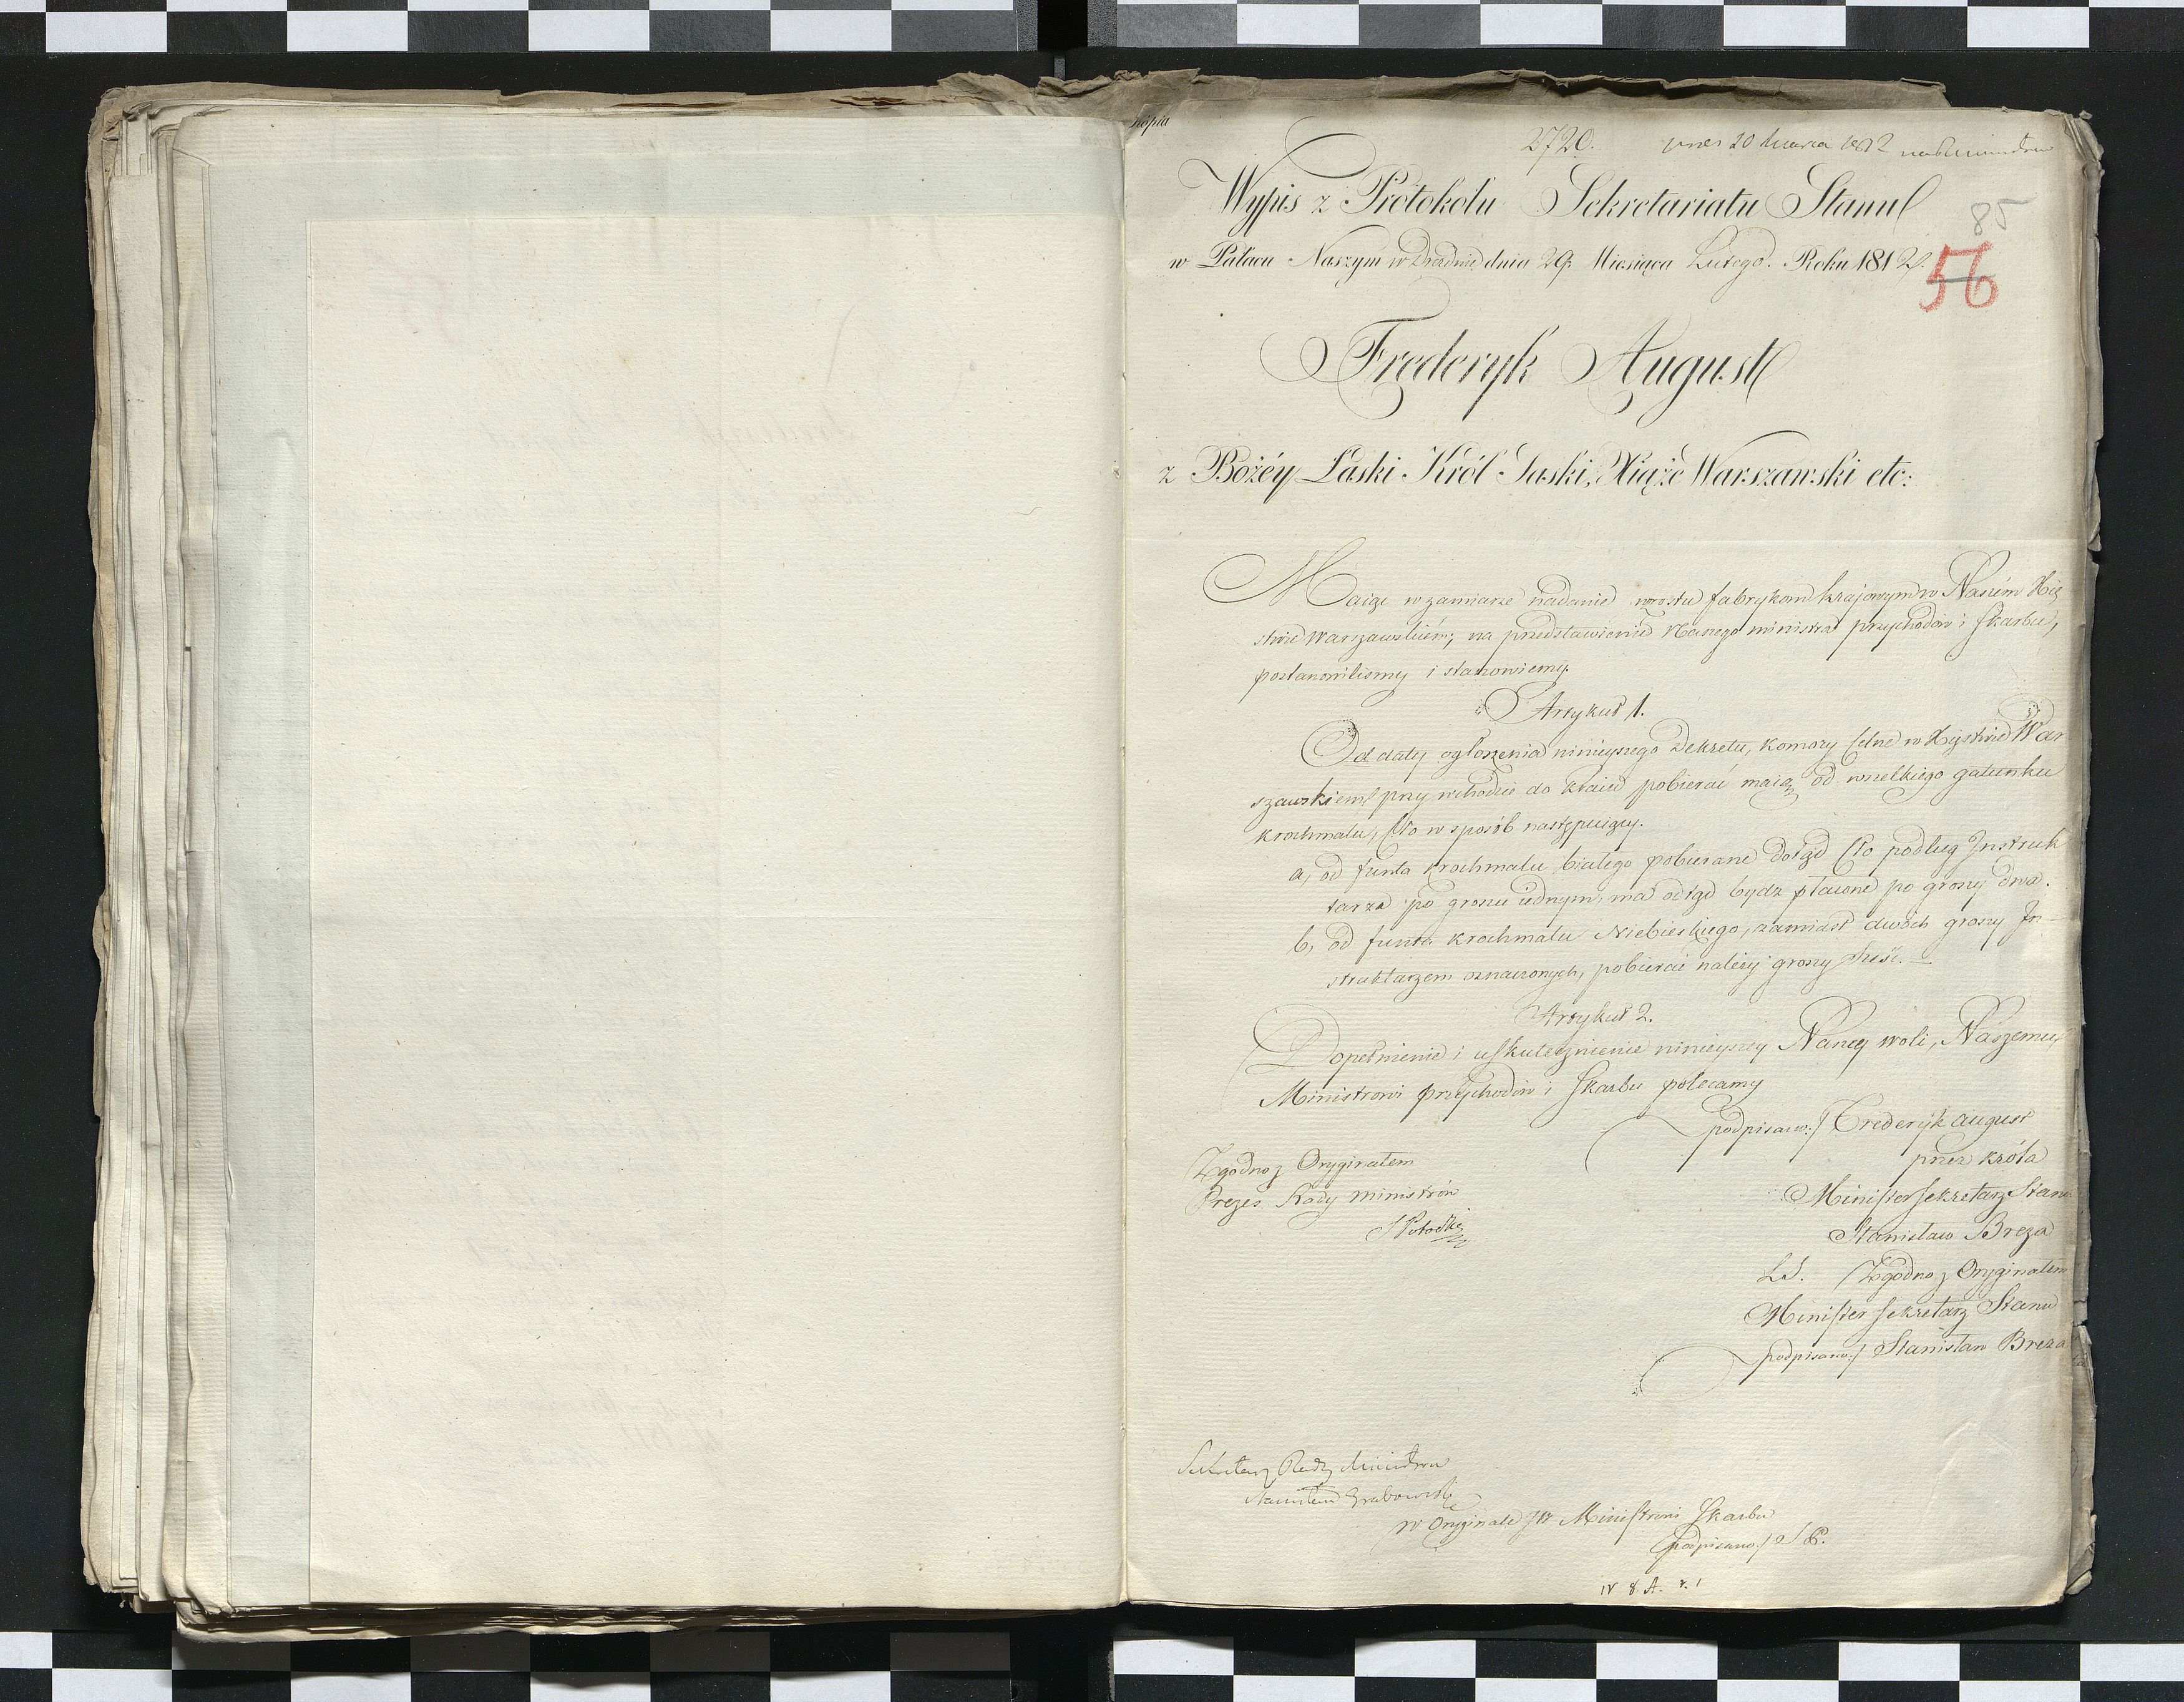 Kopia
2720. pnes 20 Marca 1812
Wypis z Protokółu Sekretariatu Stanu
85
w Pałacu Naszym w Dreźnie dnia 29. Miesiąca Lutego. Roku 1812.
56
Fryderyk August
z Bożéy Łaski Król Saski, Xiąże Warszawski etc:
Maiąc w zamiarze nadanie wzrostu fabrykom krajowym w Naszém Xię
stwie Warszawskiém; na przedstawienie Naszego ministra przychodów i skarbu,
postanowiliśmy i stanowiemy.
Artykuł 1.
Od daty ogłoszenia ninieyszego Dekretu, komory Celne w Xięstwie War
szawskiem przy wchodzie do kraiu pobierać maią od wszelkiego gatunku
krochmalu, Cło w sposób następuiący.
a, od funta krochmalu białego pobierane dotąd Cło podług Instruk
tarza po groszu iednym, ma odtąd bydz płacone po groszy dwa.
b, od funta krochmalu Niebieskiego, zamiast dwóch groszy In-
struktarzem oznaczonych, pobierać należy groszy sześć. —
Artykuł 2.
Dopełnienie i uskutecznienie ninieyszey Naszey woli, Naszemu
Ministrowi przychodów i Skarbu polecamy
podpisano:/ Frederyk August
Zgodno z Oryginałem
przez króla
Prezes Rady Ministrów
Minister Sekretarz Stanu
S Potocki
Stanisław Breza
L.S. Zgodno z Oryginałem
Minister Sekretarz Stanu
podpisano:/ Stanisław Breza
Sekretarz Rady Ministrów
Stanisław Grabowski
w Oryginale JW Ministrowi Skarbu
podpisano:/ S P.
IV 8. A. r. 1